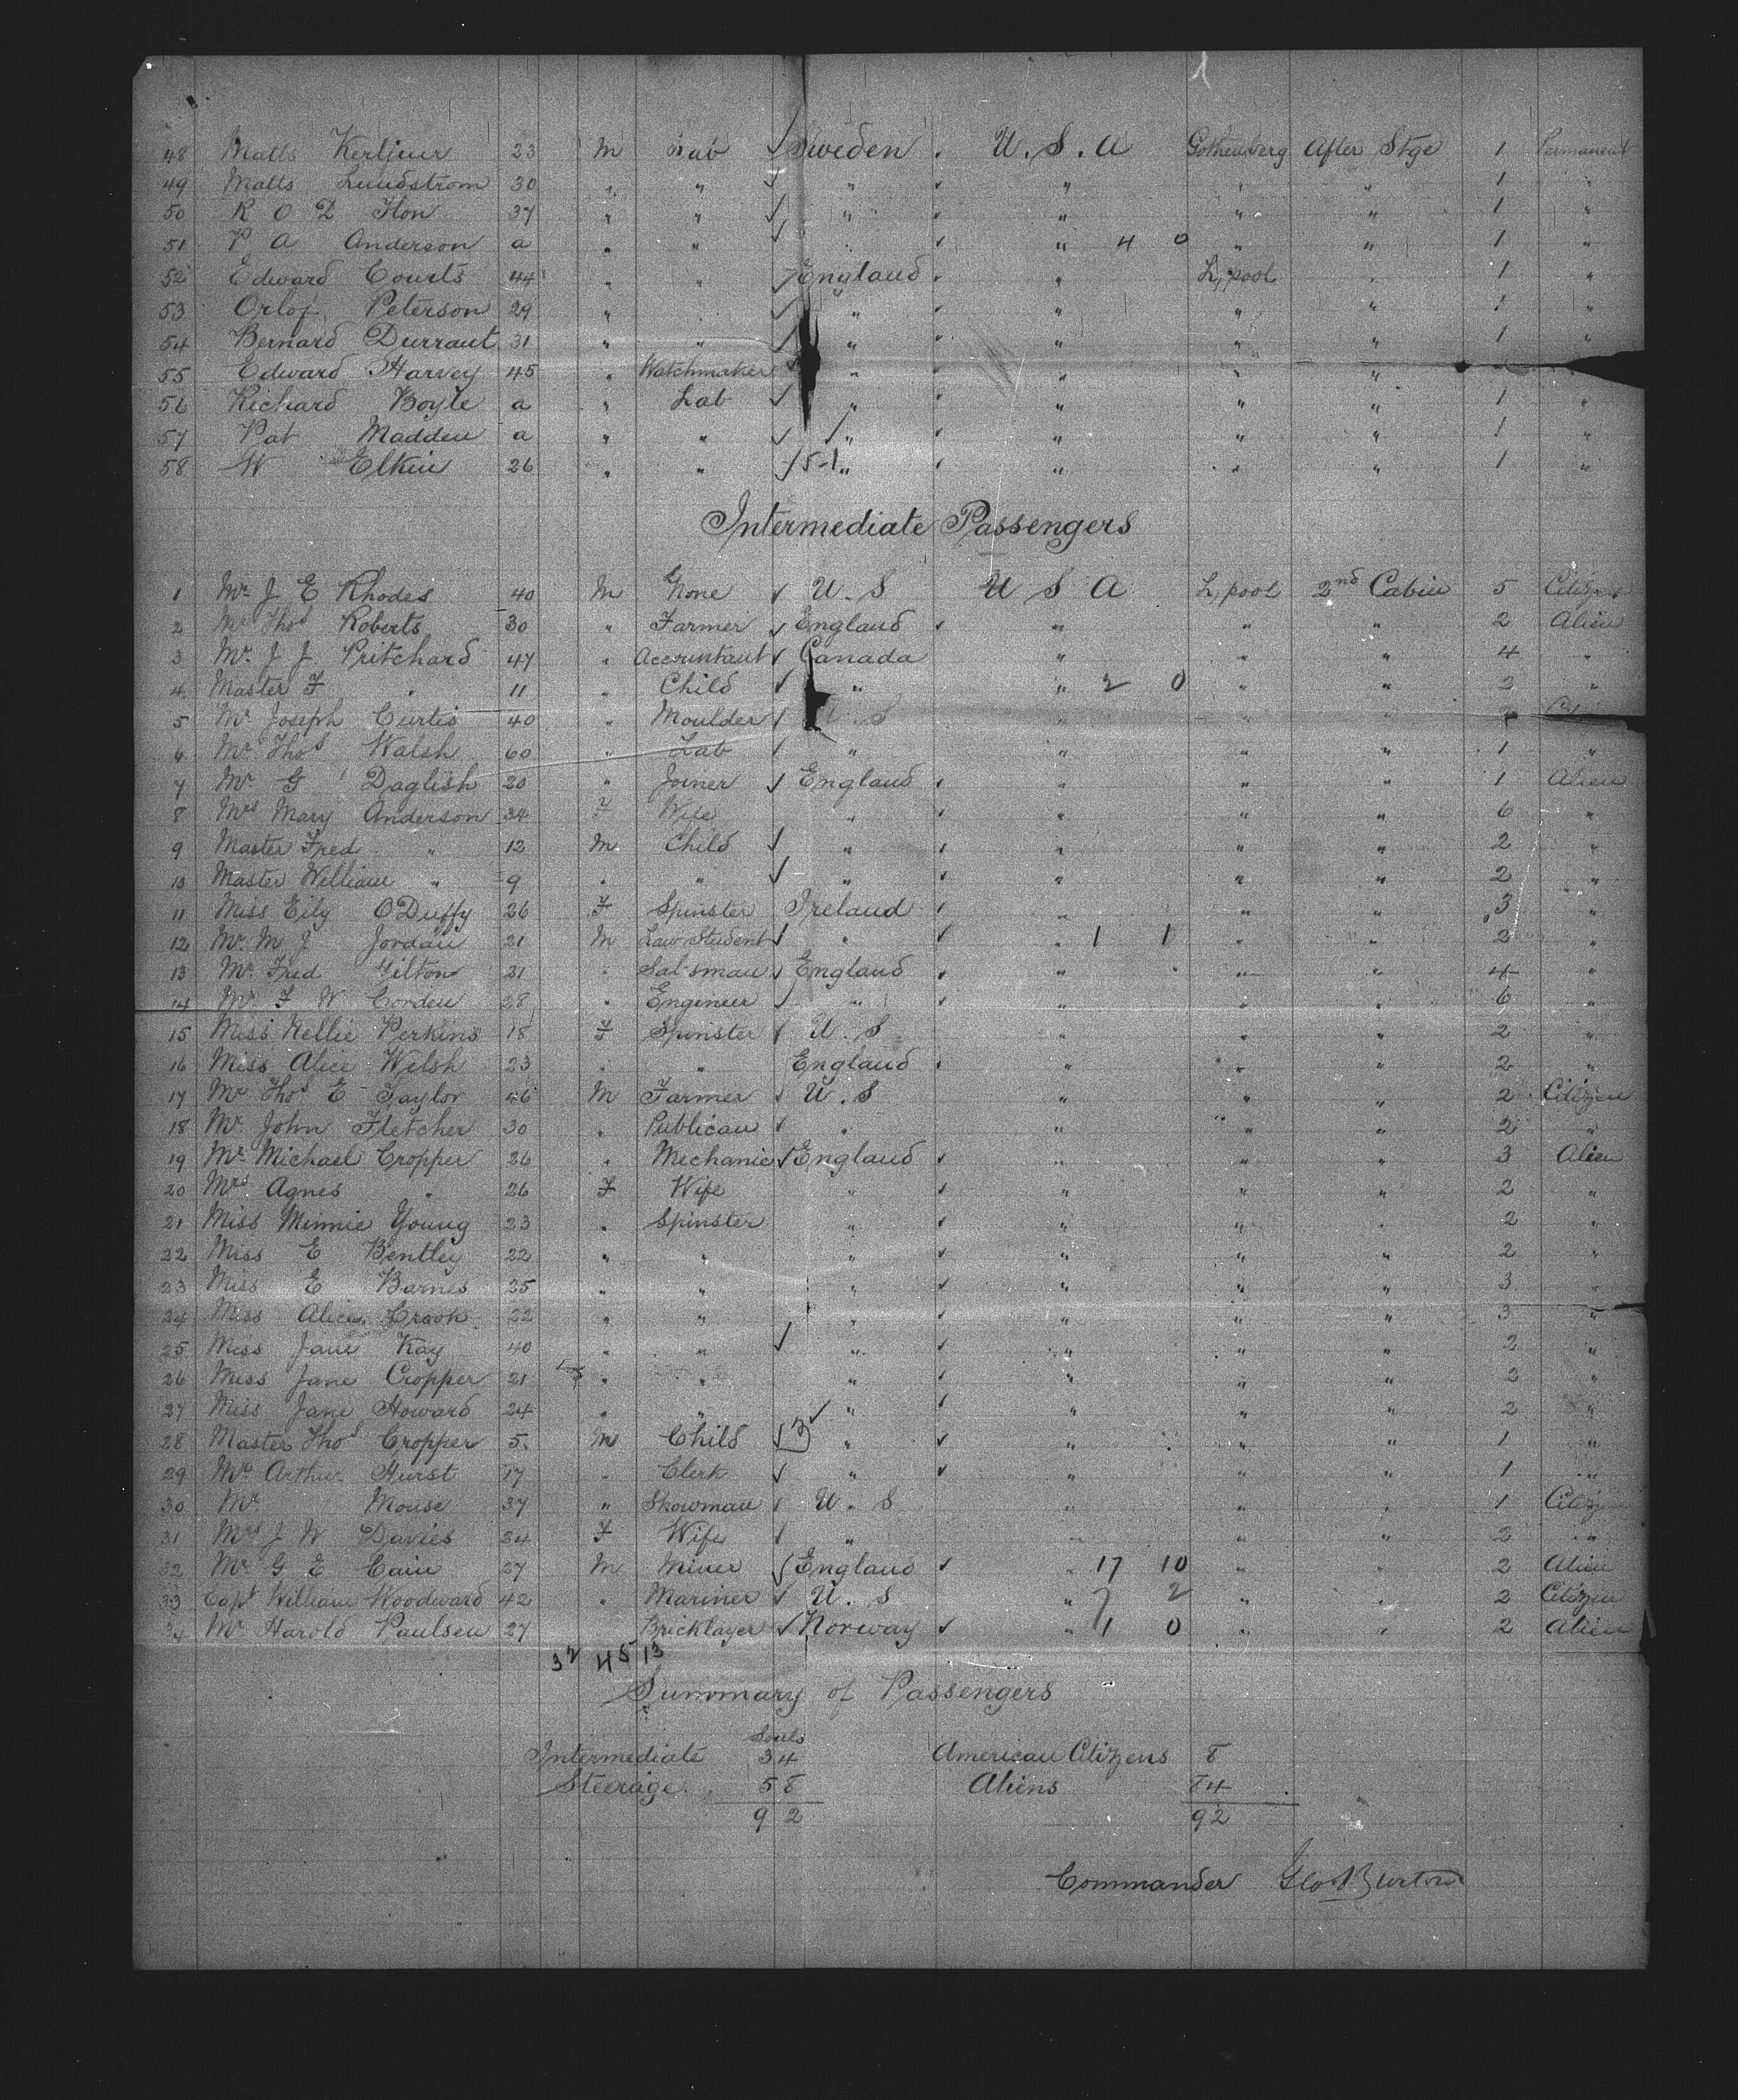 48 Matts Kerljeur 23 M Lab Sweden U.S.A Gothenberg After Stge 1 Permanent
49 Matts Lundstrom 30 " " " " " " 1 "
50 K O D Flon 37 " " " " " " 1 "
51 P A Anderson a " " " " 4 0 " " 1 "
52 Edward Courts 44 " " England " L,pool " 1 "
53 Orlof Peterson 29 " " " " " " 1 "
54 Bernard Durrant 31 " " " " " " 1 "
55 Edward Harvey 45 " Watchmaker " " " "
56 Richard Boyle a " Lab " " " " 1 "
57 Pat Madden a " " " " " " 1 "
58 W Elkin 26 " " 5-1 " " " " 1 "
Intermediate Passengers
1 Mr J E Rhodes 40 M None U.S U S A L,pool 2nd Cabin 5 Citizen
2 Mr Thos Roberts 30 " Farmer England " " " 2 Alien
3 Mr. J J Pritchard 47 " Accountant Canada " " " 4 "
4 Master F " 11 " Child " " 2 0 " " 2 "
5 Mr Joseph Curtis 40 " Moulder U.S " " "
6 Mr Thos Walsh 60 " Lab " " " " 1 "
7 Mr G Daglish 20 " Joiner England " " " 1 Alien
8 Mrs Mary Anderson 34 F Wife " " " " 6 "
9 Master Fred " 12 M Child " " " " 2 "
10 Master William " 9 " " " " " " 2 "
11 Miss Eily O'Duffy 26 F Spinster Ireland " " " 3 "
12 Mr. M J Jordan 21 M Law Student " " 1 1 " " 2 "
13 Mr. Fred Gilton 21 " Salsman England " " " 4 "
14 Mr F W Corden 28 " Engineer " " " " 6 "
15 Miss Nellie Perkins 18 F Spinster U.S " " " 2 "
16 Miss Alice Welsh 23 " " England " " " 2 "
17 Mr Thos E Taylor 46 M Farmer U.S " " " 2 Citizen
18 Mr. John Fletcher 30 " Publican " " " " 2 "
19 Mr. Michael Cropper 26 " Mechanic England " " " 3 Alien
20 Mrs Agnes " 26 F Wife " " " " 2 "
21 Miss Minnie Young 23 " Spinster " " " " 2 "
22 Miss E Bentley 22 " " " " " " 2 "
23 Miss E Barnes 25 " " " " " " 3 "
24 Miss Alice Crook 22 " " " " " " 3 "
25 Miss Jane Kay 40 " " " " " " 2 "
26 Miss Jane Cropper 21 " " " " " " 2 "
27 Miss Jane Howard 24 " " " " " " 2 "
28 Master Thos Cropper 5 M Child " " " " 1 "
29 Mr Arthur Hurst 17 " Clerk " " " " 1 "
30 Mr Mouse 37 " Showman U.S " " " 1 Citizen
31 Mrs J W Davies 24 F Wife " " " " 2 "
32 Mr. G E Cain 27 M Miner England " 17 10 " " 2 Alien
33 Capt William Woodward 42 " Mariner U.S " 7 2 " " 2 Citizen
34 Mr Harold Paulsen 27 Bricklayer Norway " 1 0 " " 2 Alien
32 45 13
Summary of Passengers
Souls
Intermediate 34 American Citizens 8
Steerage. 58 Aliens 84
92 92
Commander Geo Burton